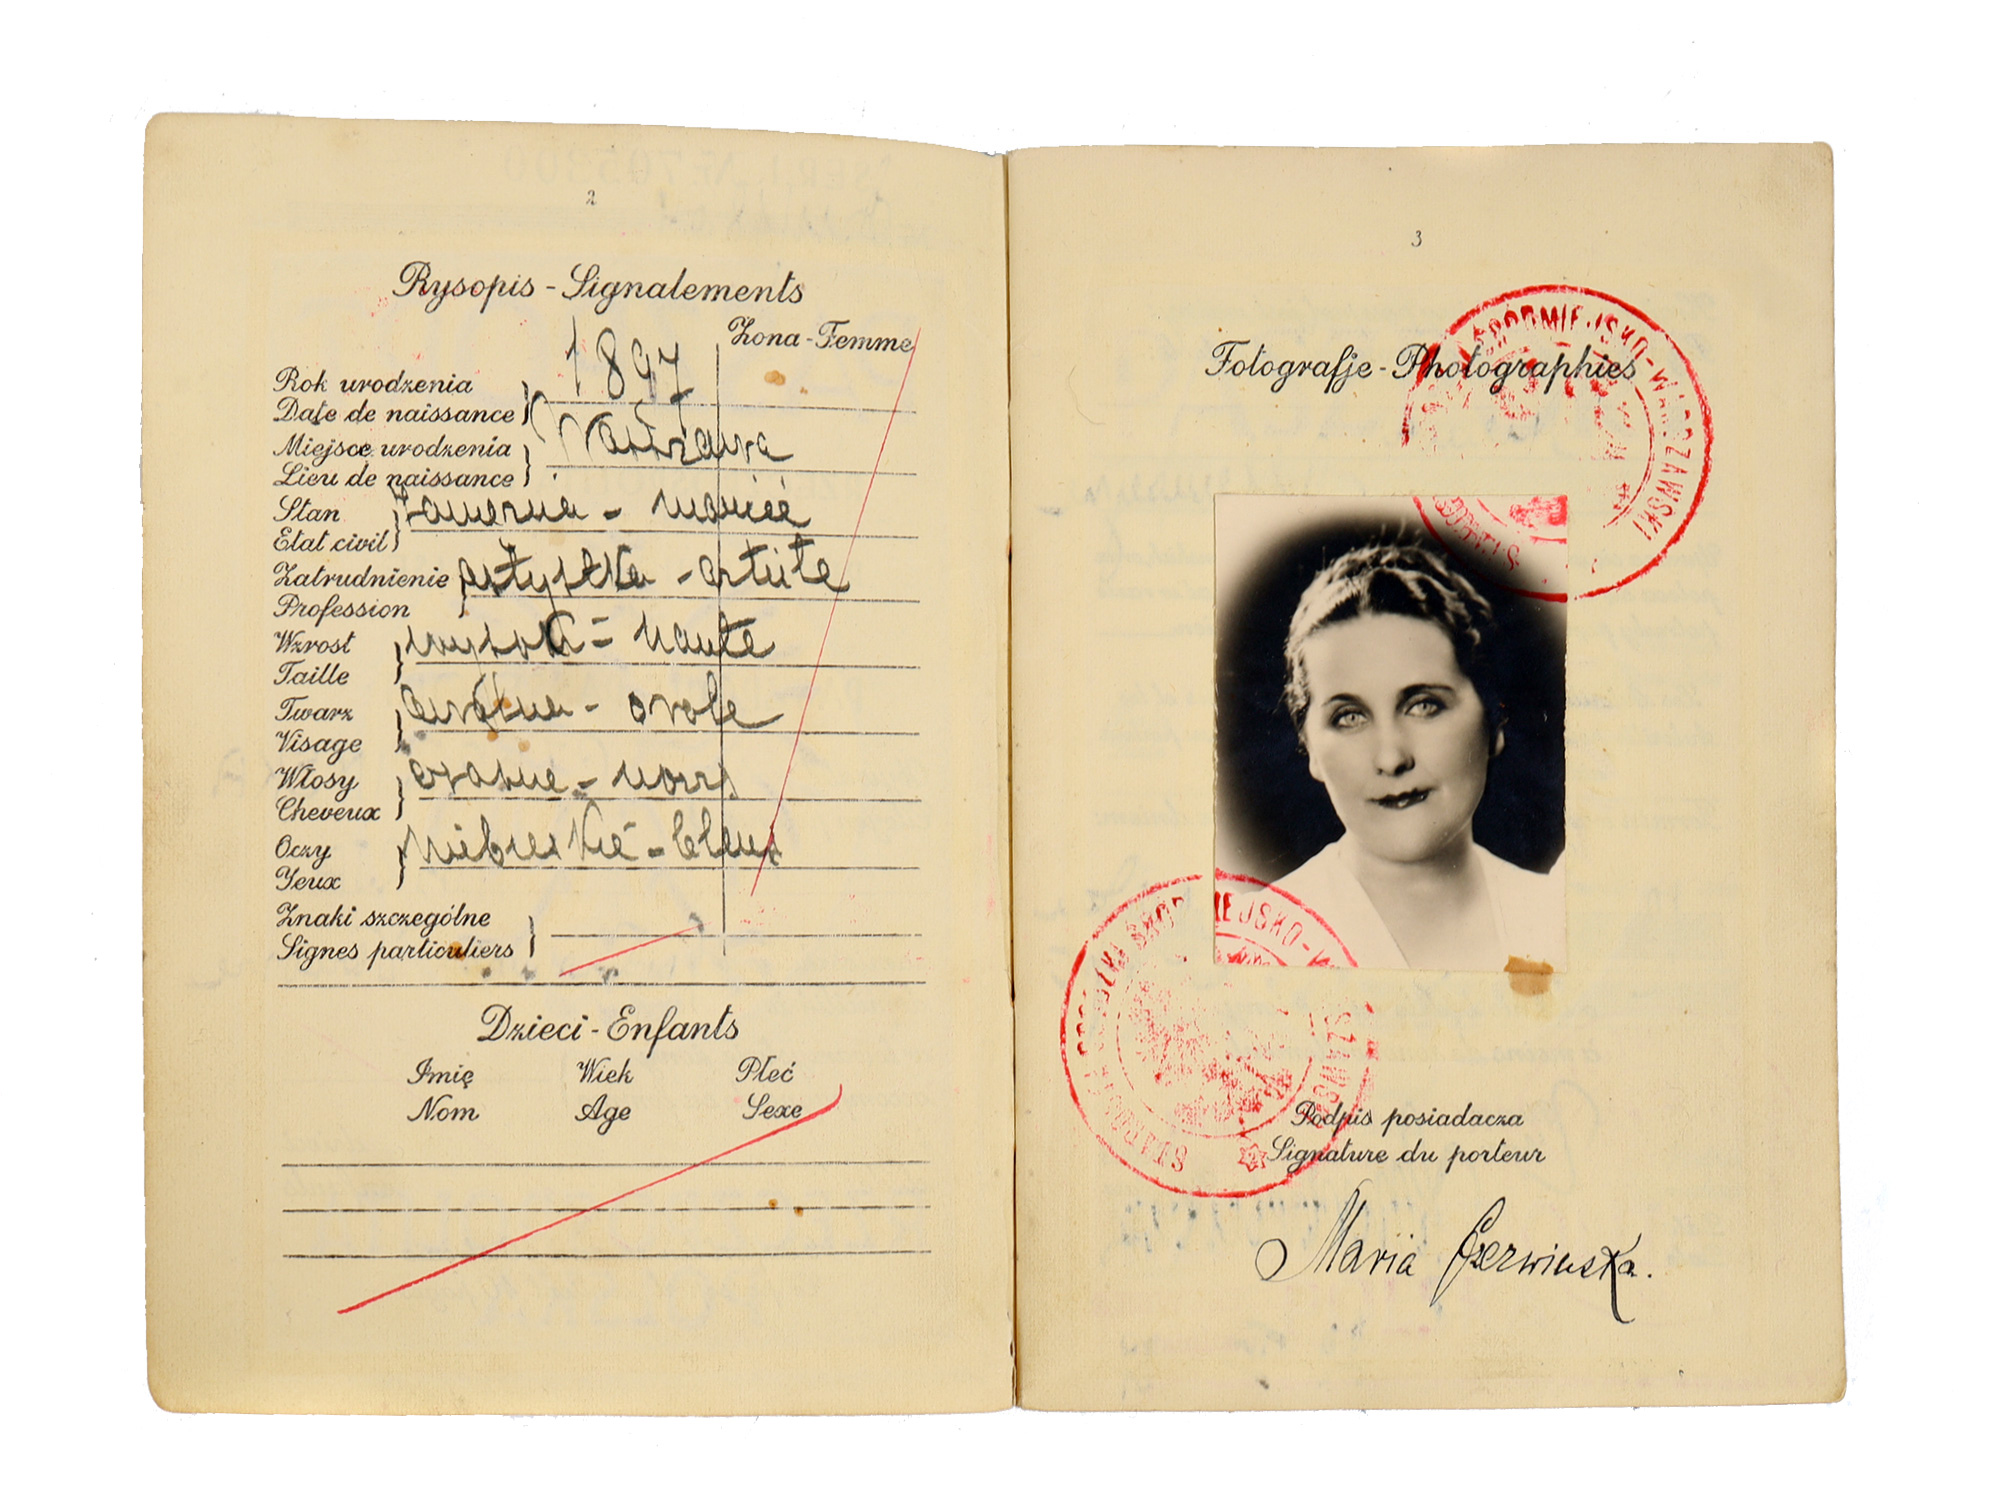 2
Rysopis - Signalements
Żona - Femme
Rok urodzenia
Date de naissance
1897
Miejsce urodzenia
Lieu de naissance
Warszawa
Stan
Etat civil
zamężna - mariée
Zatrudnienie
Profession
artystka - artiste
Wzrost
Taille
wysoki - haute
Twarz
Visage
owalna - ovale
Włosy
Cheveux
czarne - noirs
Oczy
Yeux
niebieskie - bleus
Znaki szczególne
Signes particuliers
Dzieci - Enfants
Imię Wiek Płeć
Nom Age Sexe
3
Fotografje - Photographies
ŚRÓDMIEJSKO-WARSZAWSKI
Podpis posiadacza
Signature du porteur
Maria Czerwinska.